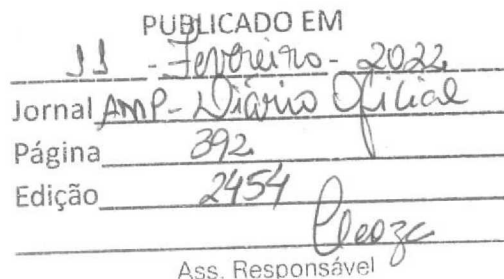 PUBLICADO EM
11 - Fevereiro - 2022
Jornal AMP - Diário Oficial
Página 392
Edição 2454
Ass. Responsável